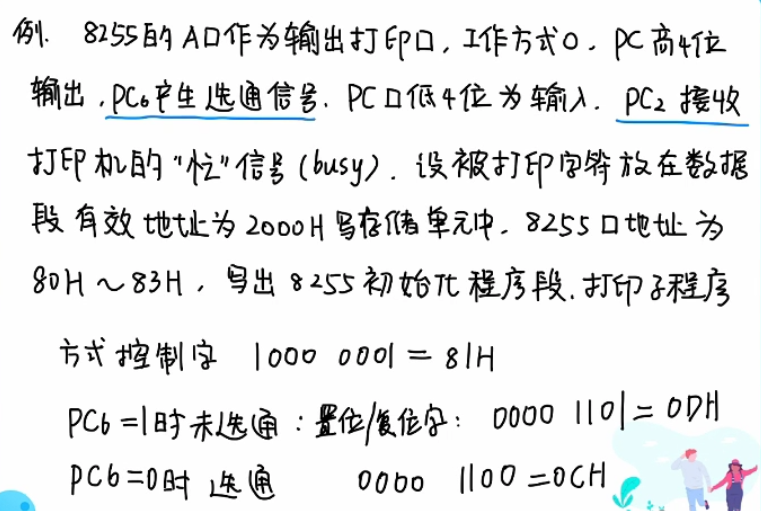 例. 8255的A口作为输出打印口，工作方式0，PC高4位
输出，PC6产生选通信号. PC口低4位为输入. PC2接收
打印机的“忙”信号(busy). 设被打印字符放在数据
段有效地址为2000H号存储单元中. 8255口地址为
80H～83H，写出8255初始化程序段、打印子程序
方式控制字 1000 0001=81H
PC6=1时未选通：置位/复位字： 0000 1101=0DH
PC6=0时 选通 0000 1100=0CH